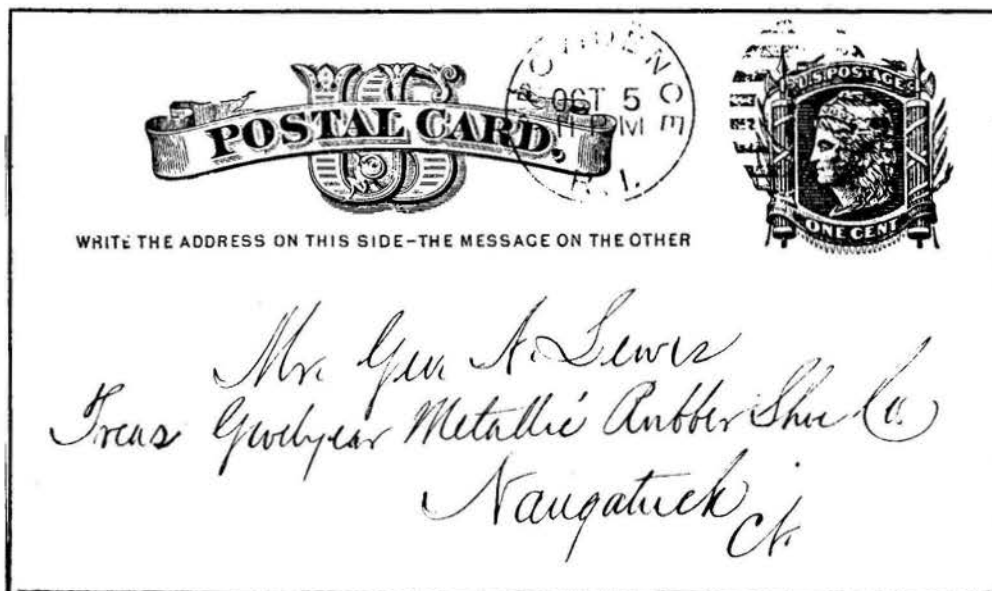 US
POSTAL CARD.
PROVIDENCE
OCT 5
11 PM
R.I.
U.S. POSTAGE
ONE CENT
WRITE THE ADDRESS ON THIS SIDE-THE MESSAGE ON THE OTHER
Mr. Geo. A. Lewis
Treas Goodyear Metallic Rubber Shoe Co.
Naugatuck
Ct.